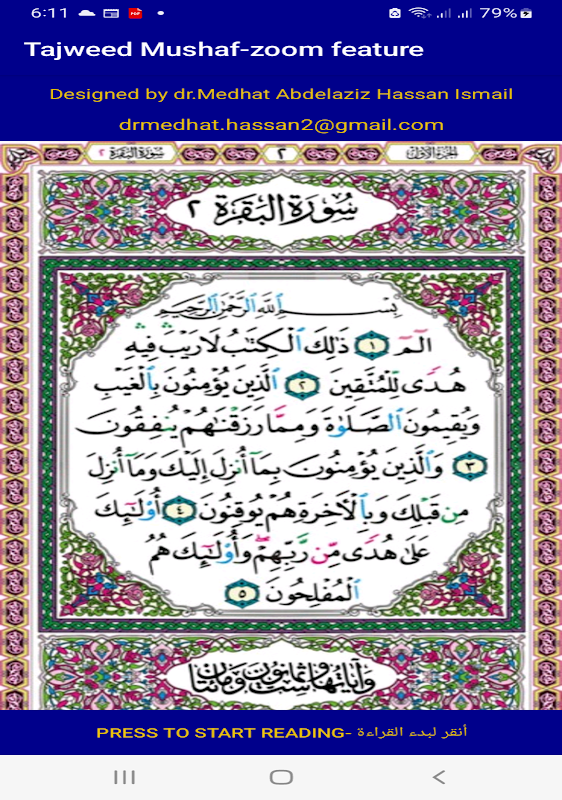 6:11
79%
Tajweed Mushaf-zoom feature
Designed by dr.Medhat Abdelaziz Hassan Ismail
drmedhat.hassan2@gmail.com
الجزء الأول ٢ سورة البقرة ٢
سُورَةُ البَقَرَةِ ٢
بِسْمِ ٱللَّهِ ٱلرَّحْمَٰنِ ٱلرَّحِيمِ
الٓمٓ ١ ذَٰلِكَ ٱلْكِتَٰبُ لَا رَيْبَ ۛ فِيهِ ۛ
هُدًى لِّلْمُتَّقِينَ ٢ ٱلَّذِينَ يُؤْمِنُونَ بِٱلْغَيْبِ
وَيُقِيمُونَ ٱلصَّلَوٰةَ وَمِمَّا رَزَقْنَٰهُمْ يُنفِقُونَ
٣ وَٱلَّذِينَ يُؤْمِنُونَ بِمَآ أُنزِلَ إِلَيْكَ وَمَآ أُنزِلَ
مِن قَبْلِكَ وَبِٱلْأٓخِرَةِ هُمْ يُوقِنُونَ ٤ أُو۟لَٰٓئِكَ
عَلَىٰ هُدًى مِّن رَّبِّهِمْ ۖ وَأُو۟لَٰٓئِكَ هُمُ
ٱلْمُفْلِحُونَ ٥
وآياتها ست وثمانون ومائتان
PRESS TO START READING- أنقر لبدء القراءة